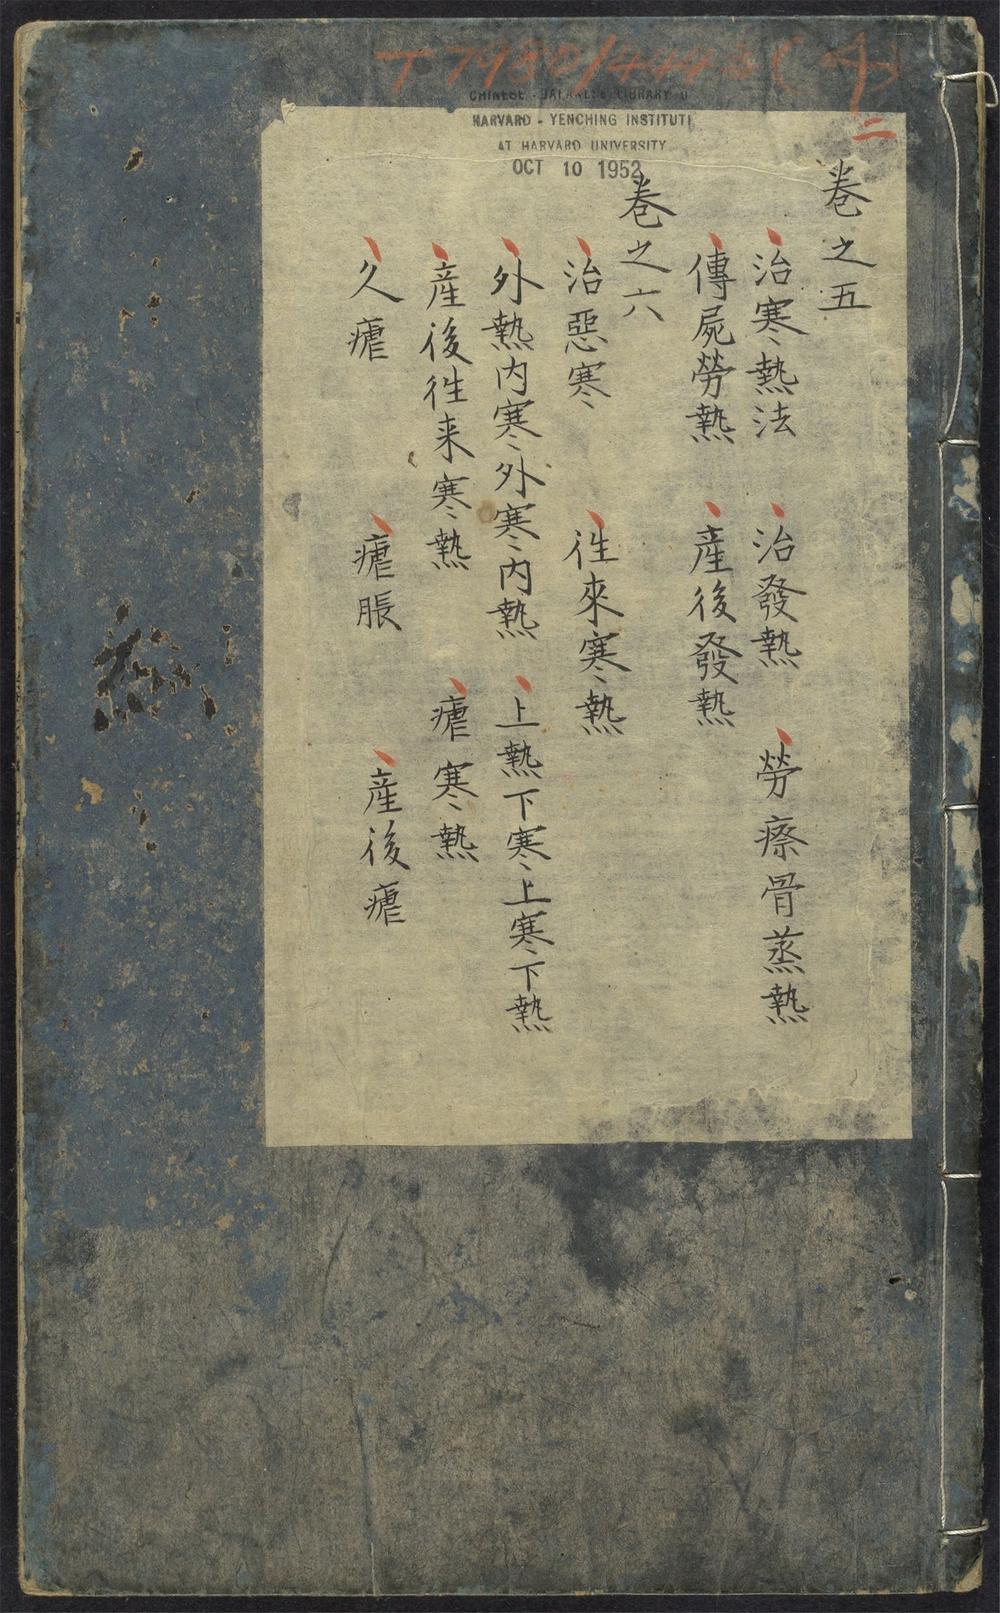 T 7980/4448 (4)
二
CHINESE - JAPANESE LIBRARY O
HARVARD - YENCHING INSTITUTI
AT HARVARD UNIVERSITY
OCT 10 1952
卷之五
治寒熱法 治發熱 勞瘵骨蒸熱
傳屍勞熱 產後發熱
卷之六
治惡寒 徃來寒熱
外熱內寒外寒內熱 上熱下寒上寒下熱
產後徃来寒熱 瘧寒熱
久瘧 瘧脹 產後瘧